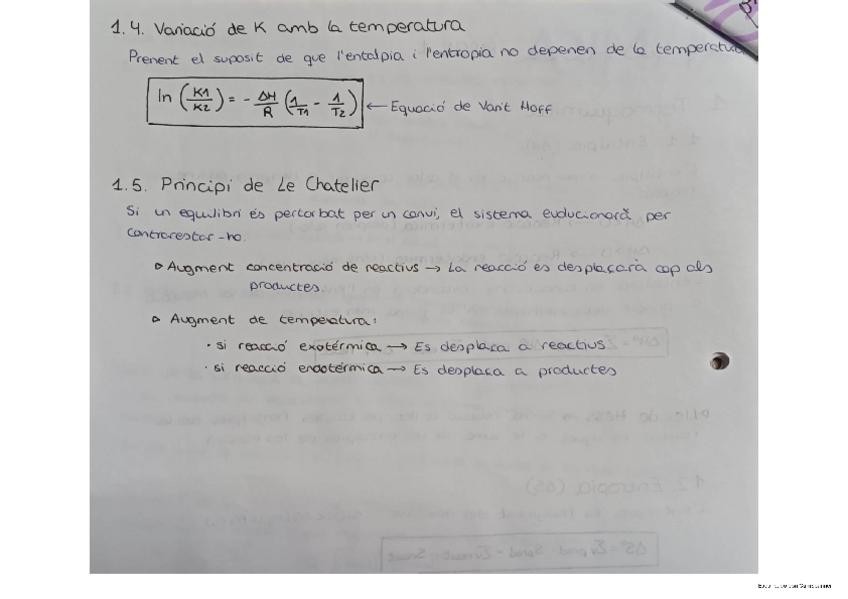 1.4. Variació de K amb la temperatura
Prenent el suposit de que l'entalpia i l'entropia no depenen de la temperatura
ln (K1/K2) = - ΔH/R (1/T1 - 1/T2) ← Equació de Van't Hoff
1.5. Principi de Le Chatelier
Si un equilibri és pertorbat per un canvi, el sistema evolucionarà per
contrarestar-ho.
▹ Augment concentració de reactius → La reacció es desplaçarà cap als
productes.
▹ Augment de temperatura:
· si reacció exotérmica → Es desplaça a reactius
· si reacció endotérmica → Es desplaça a productes